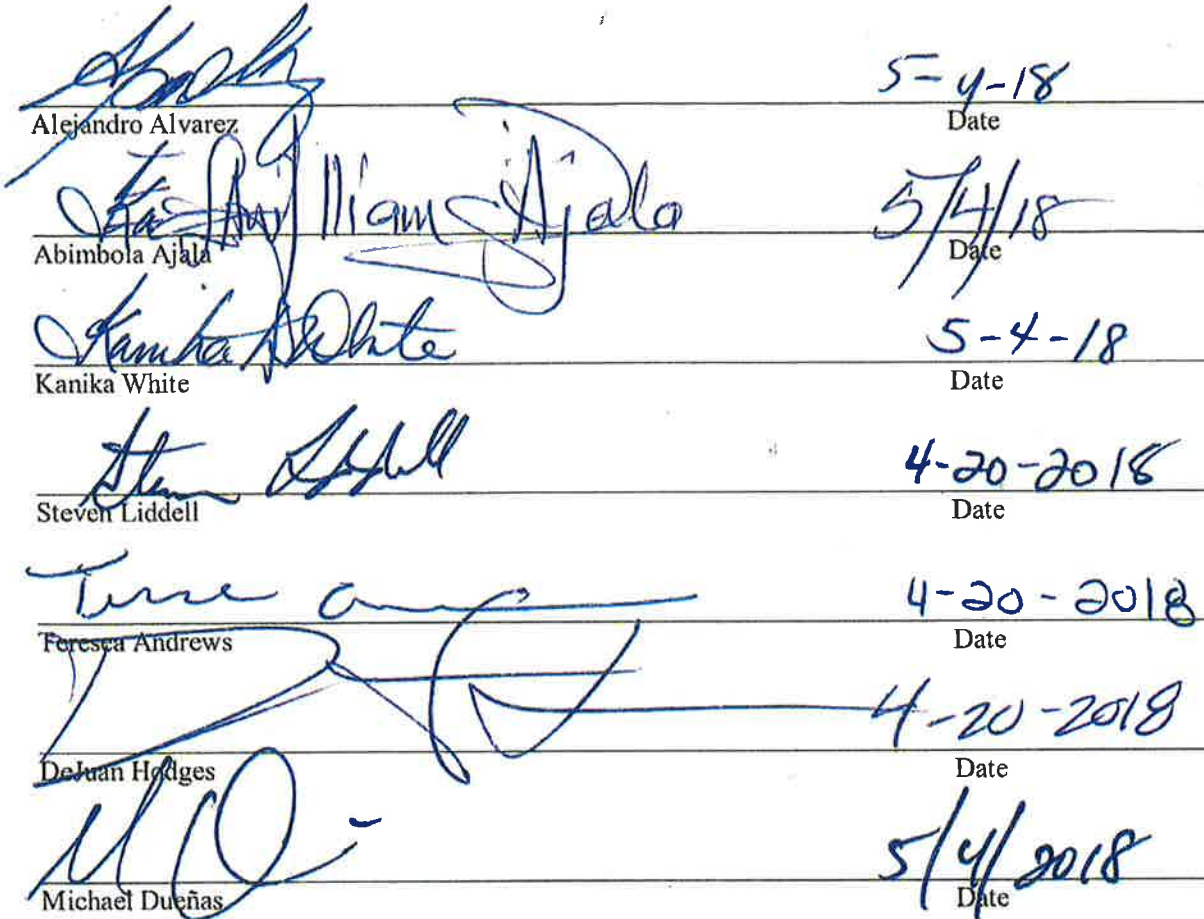 5-4-18
Alejandro Alvarez Date
Williams Ajala 5/4/18
Abimbola Ajala Date
Kanika White 5-4-18
Kanika White Date
Steven Liddell 4-20-2018
Steven Liddell Date
4-20-2018
Teresea Andrews Date
4-20-2018
DeJuan Hodges Date
5/4/2018
Michael Dueñas Date